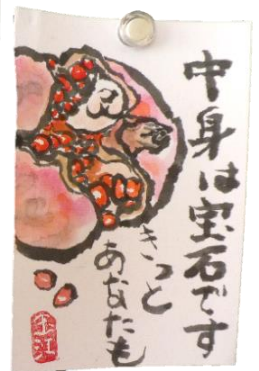 中身は宝石です
きっと
あなたも